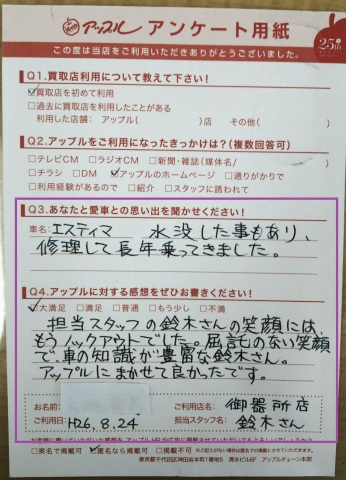 アップル アンケート用紙
25th
この度は当店をご利用いただきありがとうございました。
Q1.買取店利用について教えて下さい!
☑買取店を初めて利用
□過去に買取店を利用したことがある
利用した店舗: アップル( )店 その他( )
Q2.アップルをご利用になったきっかけは?(複数回答可)
□テレビCM □ラジオCM □新聞・雑誌(媒体名/ )
□チラシ □DM ☑アップルのホームページ □通りがかりで
□利用経験があるので □紹介 □スタッフに誘われて
Q3.あなたと愛車との思い出を聞かせください!
車名: エスティマ 水没した事もあり、
修理して長年乗ってきました。
Q4.アップルに対する感想をぜひお書きください!
☑大満足 □満足 □普通 □もう少し □不満
担当スタッフの鈴木さんの笑顔には、
もうノックアウトでした。屈託のない笑顔
で、車の知識が豊富な鈴木さん。
アップルにまかせて良かったです。
お名前:
ご利用店名: 御器所店
ご利用日: H26.8.24
担当スタッフ名: 鈴木さん
□実名で掲載可 ☑匿名なら掲載可
東京都千代田区神田岩本町1番地5 清水ビル6F アップルチェーン本部